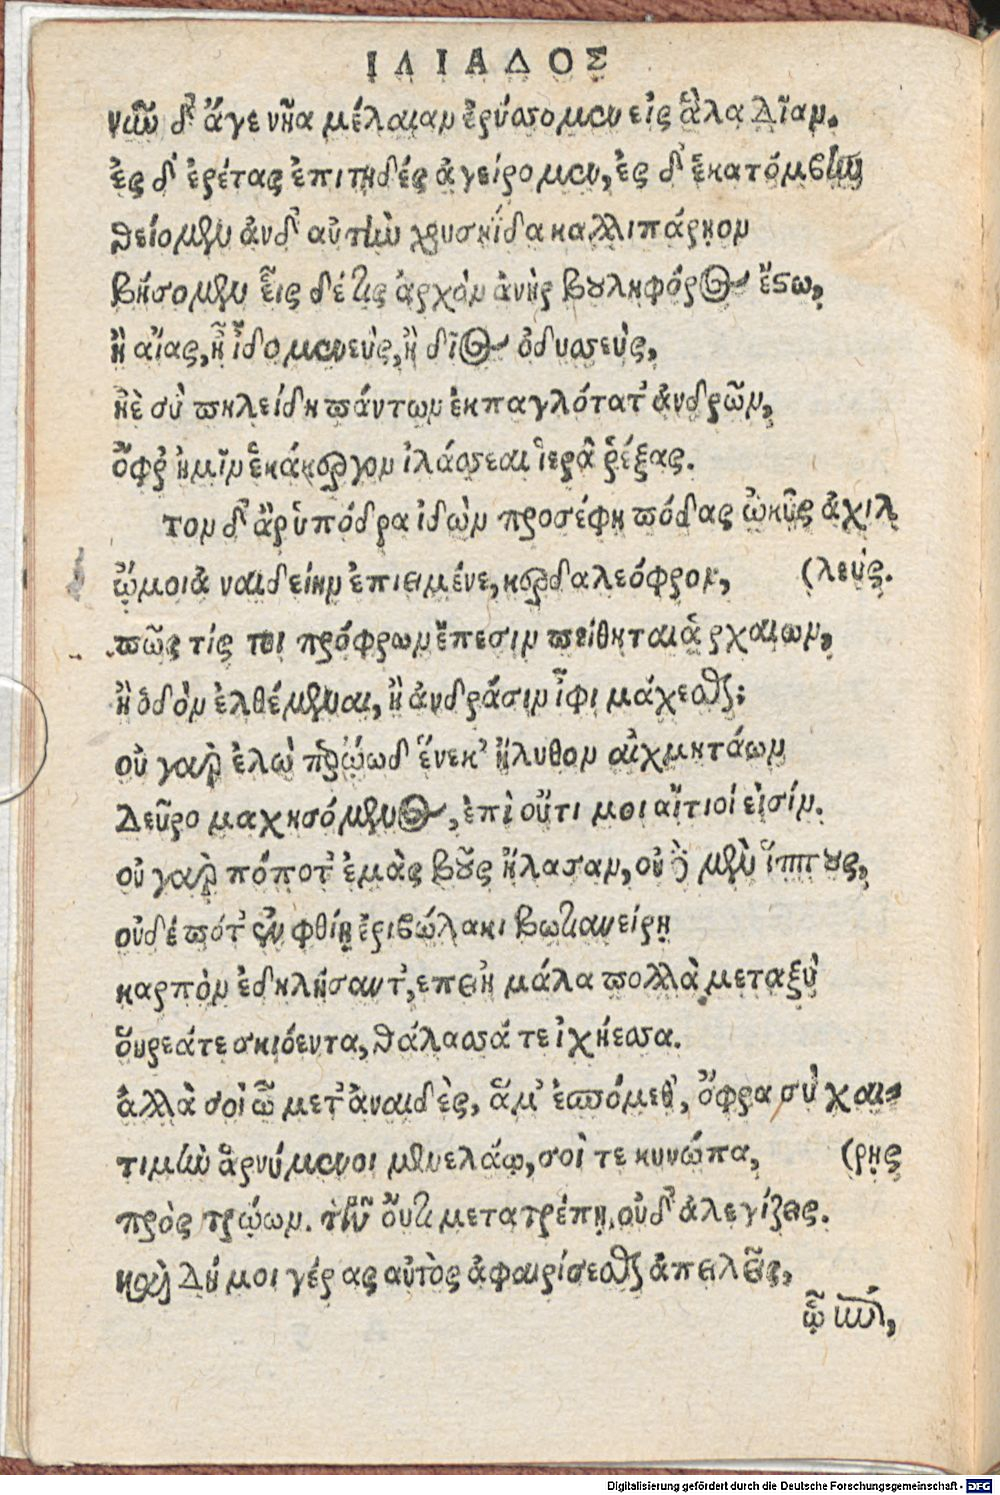 ΙΛΙΑΔΟΣ
νῦν δ' ἄγε νῆα μέλαιναν ἐρύσσομεν εἰς ἅλα δῖαν.
ἐς δ' ἐρέτας ἐπιτηδές ἀγείρομεν, ἐς δ' ἑκατόμβην
θείομεν ἀνδ' αὐτὴν χρυσηΐδα καλλιπάρηον
βήσομεν εἷς δέ τις ἀρχὸν ἀνὴρ βουληφόρος ἔστω,
ἢ αἴας, ἢ ἰδομενεὺς, ἢ δῖος ὀδυσσεὺς,
ἠὲ σὺ πηλείδη πάντων ἐκπαγλότατ' ἀνδρῶν,
ὄφρ' ἡμῖν ἑκάεργον ἱλάσσεαι ἱερὰ ῥέξας.
τον δ' ἄρ ὑπόδρα ἰδὼν προσέφη πόδας ὠκὺς ἀχιλ
ὤμοι ἀναιδείην ἐπιειμένε, κερδαλεόφρον, (λεύς.
πῶς τίς τοι πρόφρων ἔπεσιν πείθηται ἀχαιων,
ἢ ὁδὸν ἐλθέμεναι, ἢ ἀνδράσιν ἶφι μάχεσθαι;
οὐ γαρ ἐγὼ τρώων ἕνεκ' ἤλυθον αἰχμητάων
Δεῦρο μαχησόμενος, ἐπὶ οὔτι μοι αἴτιοί εἰσίν.
οὐ γαρ πόποτ' ἐμὰς βοῦς ἤλασαν, οὐ δὲ μὲν ἵππους,
οὐδέ ποτ' ἐν φθίῃ ἐριβώλακι βωτιανείρῃ
καρπὸν ἐδηλήσαντ', επειὴ μάλα πολλὰ μεταξὺ
ὄυρεά τε σκιόεντα, θάλασσά τε ἰχήεσσα.
ἀλλὰ σοὶ ὦ μετ' ἀναιδὲς, ἅμ' ἑσπόμεθ', ὄφρα σὺ χαι-
τιμὴν ἀρνύμενοι μενελάῳ, σοὶ τε κυνώπα, (ρης
πρὸς τρώων. τῶν οὔτι μετατρέπῃ, οὐδ' ἀλεγίζεις.
καὶ Δή μοι γέρας αὐτὸς ἀφαιρίσεσθαι ἀπειλεῖς,
ᾧ ἔπι,